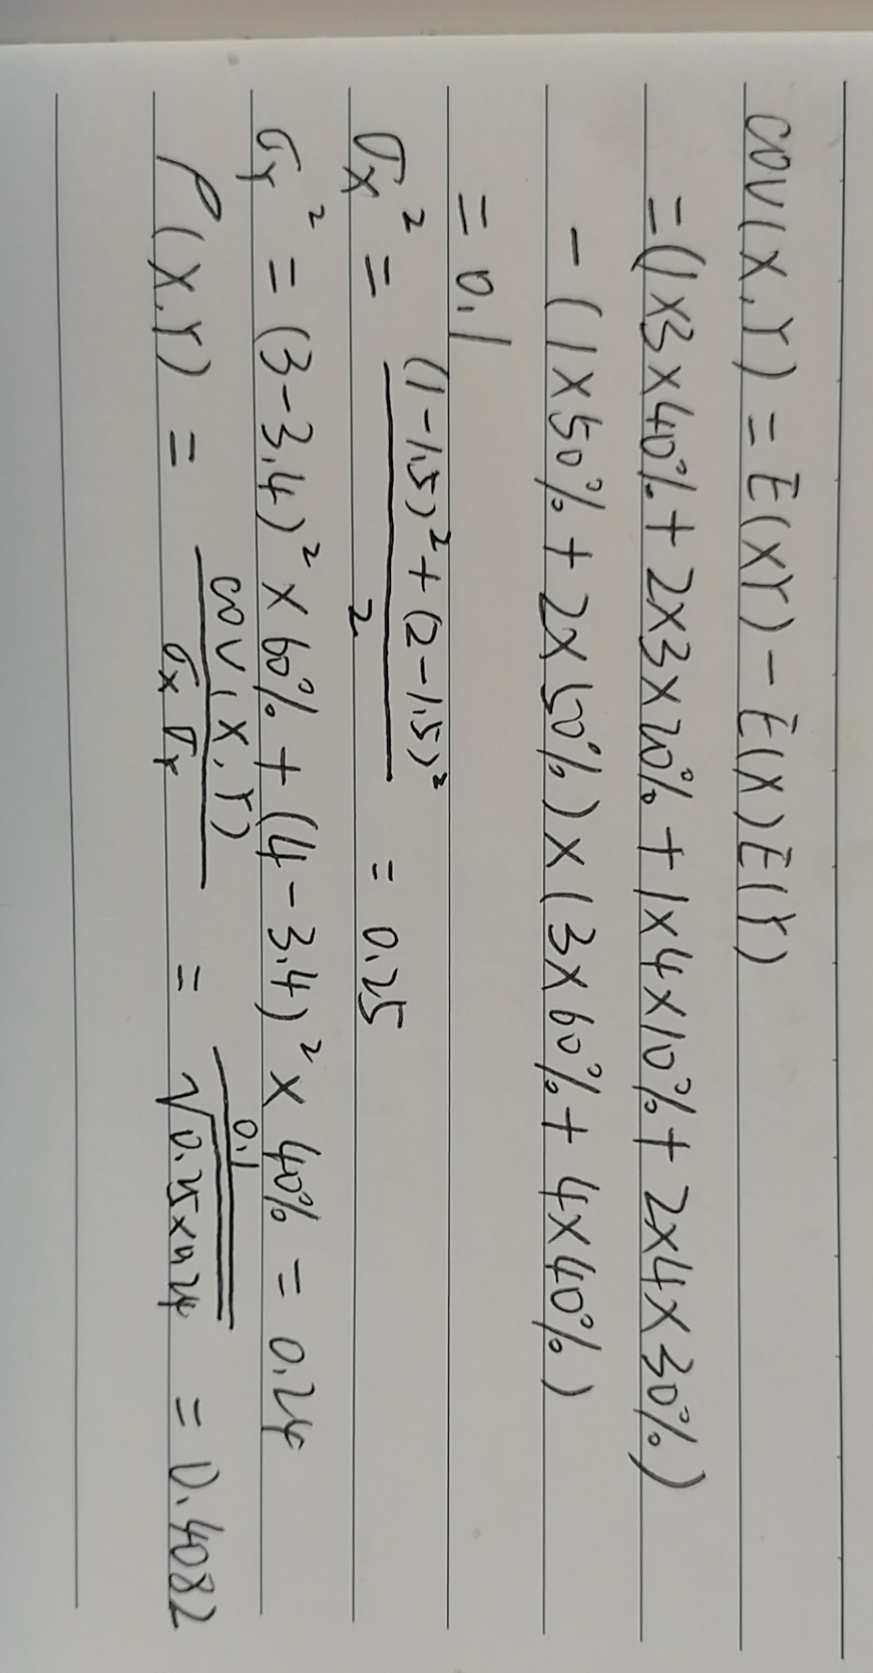 cov(X,Y) = E(XY) - E(X)E(Y)
= (1×3×40% + 2×3×20% + 1×4×10% + 2×4×30%)
- (1×50% + 2×50%) × (3×60% + 4×40%)
= 0.1
σx² = ((1-1.5)² + (2-1.5)²) / 2 = 0.25
σY² = (3-3.4)² × 60% + (4-3.4)² × 40% = 0.24
ρ(X,Y) = cov(X,Y) / σxσY = 0.1 / √0.25×0.24 = 0.4082